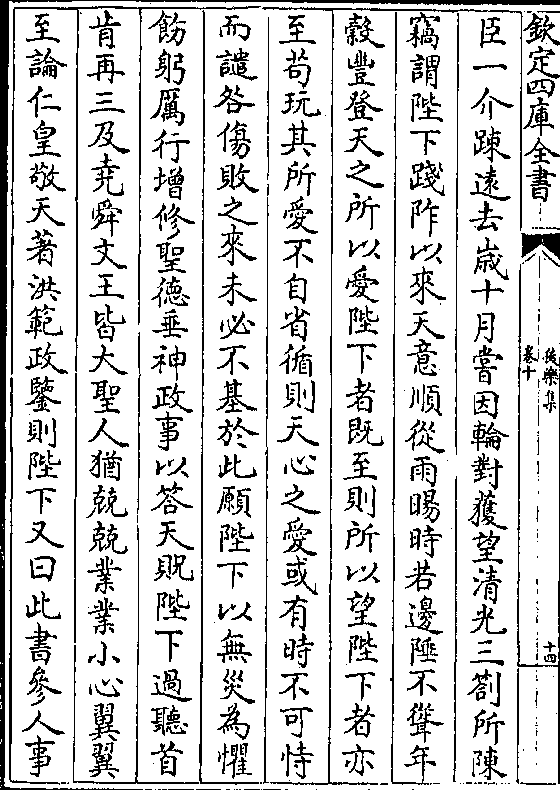 欽定四庫全書
後樂集
卷十
十四
臣一介踈遠去歲十月嘗因輪對獲望清光三劄所陳
竊謂陛下踐阼以來天意順從雨暘時若邊陲不聳年
穀豐登天之所以愛陛下者既至則所以望陛下者亦
至苟玩其所愛不自省循則天心之愛或有時不可恃
而譴咎傷敗之來未必不基於此願陛下以無災為懼
飭躬厲行增修聖德垂神政事以答天貺陛下過聽首
肯再三及堯舜文王皆大聖人猶兢兢業業小心翼翼
至論仁皇敬天著洪範政鑒則陛下又曰此書參人事